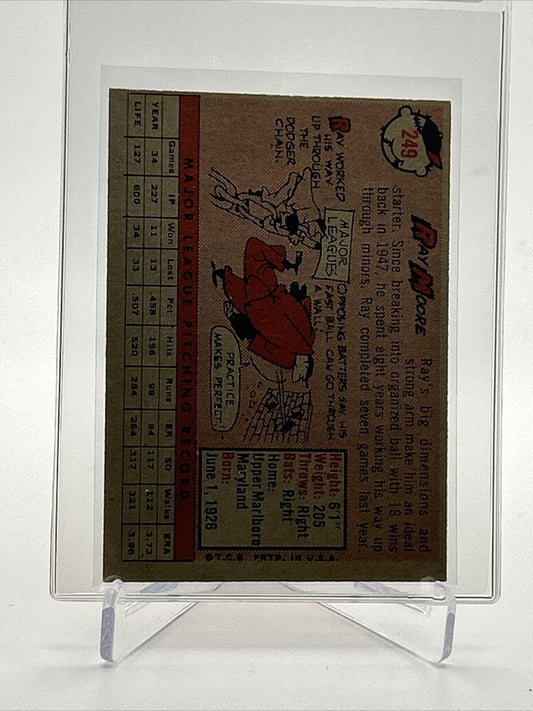 249
RAY MOORE
Ray's big dimensions and
strong arm make him an ideal
starter. Since breaking into organized ball with 18 wins
back in 1947, he spent eight years working his way up
through minors. Ray completed seven games last year.
RAY WORKED
HIS WAY
UP THROUGH
THE
DODGER
CHAIN.
MAJOR
LEAGUES
OPPOSING BATTERS SAY HIS
FAST BALL CAN GO THROUGH
A WALL.
PRACTICE
MAKES PERFECT!
Height: 6'1"
Weight: 205
Throws: Right
Bats: Right
Home:
Upper Marlboro
Maryland
Born:
June 1, 1926
MAJOR LEAGUE PITCHING RECORD
Games IP Won Lost Pct Hits Runs ER SO Walks ERA
YEAR 34 227 11 13 .458 196 99 94 117 112 3.73
LIFE 127 600 34 33 .507 520 284 264 317 321 3.96